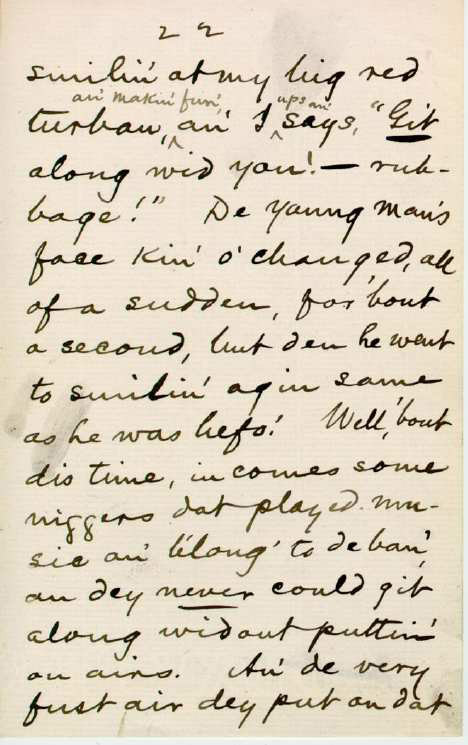 22
smilin' at my big red
an' makin' fun,
ups an'
turban, an' I says, "Git
along wid you! — rub-
bage!" De young man's
face kin' o' changed, all
of a sudden, for 'bout
a second, but den he went
to smilin' agin same
as he was befo'. Well, 'bout
dis time, in comes some
niggers dat played mu-
sic an' b'long' to de ban',
an dey never could git
along widout puttin'
on airs. An' de very
fust air dey put on dat